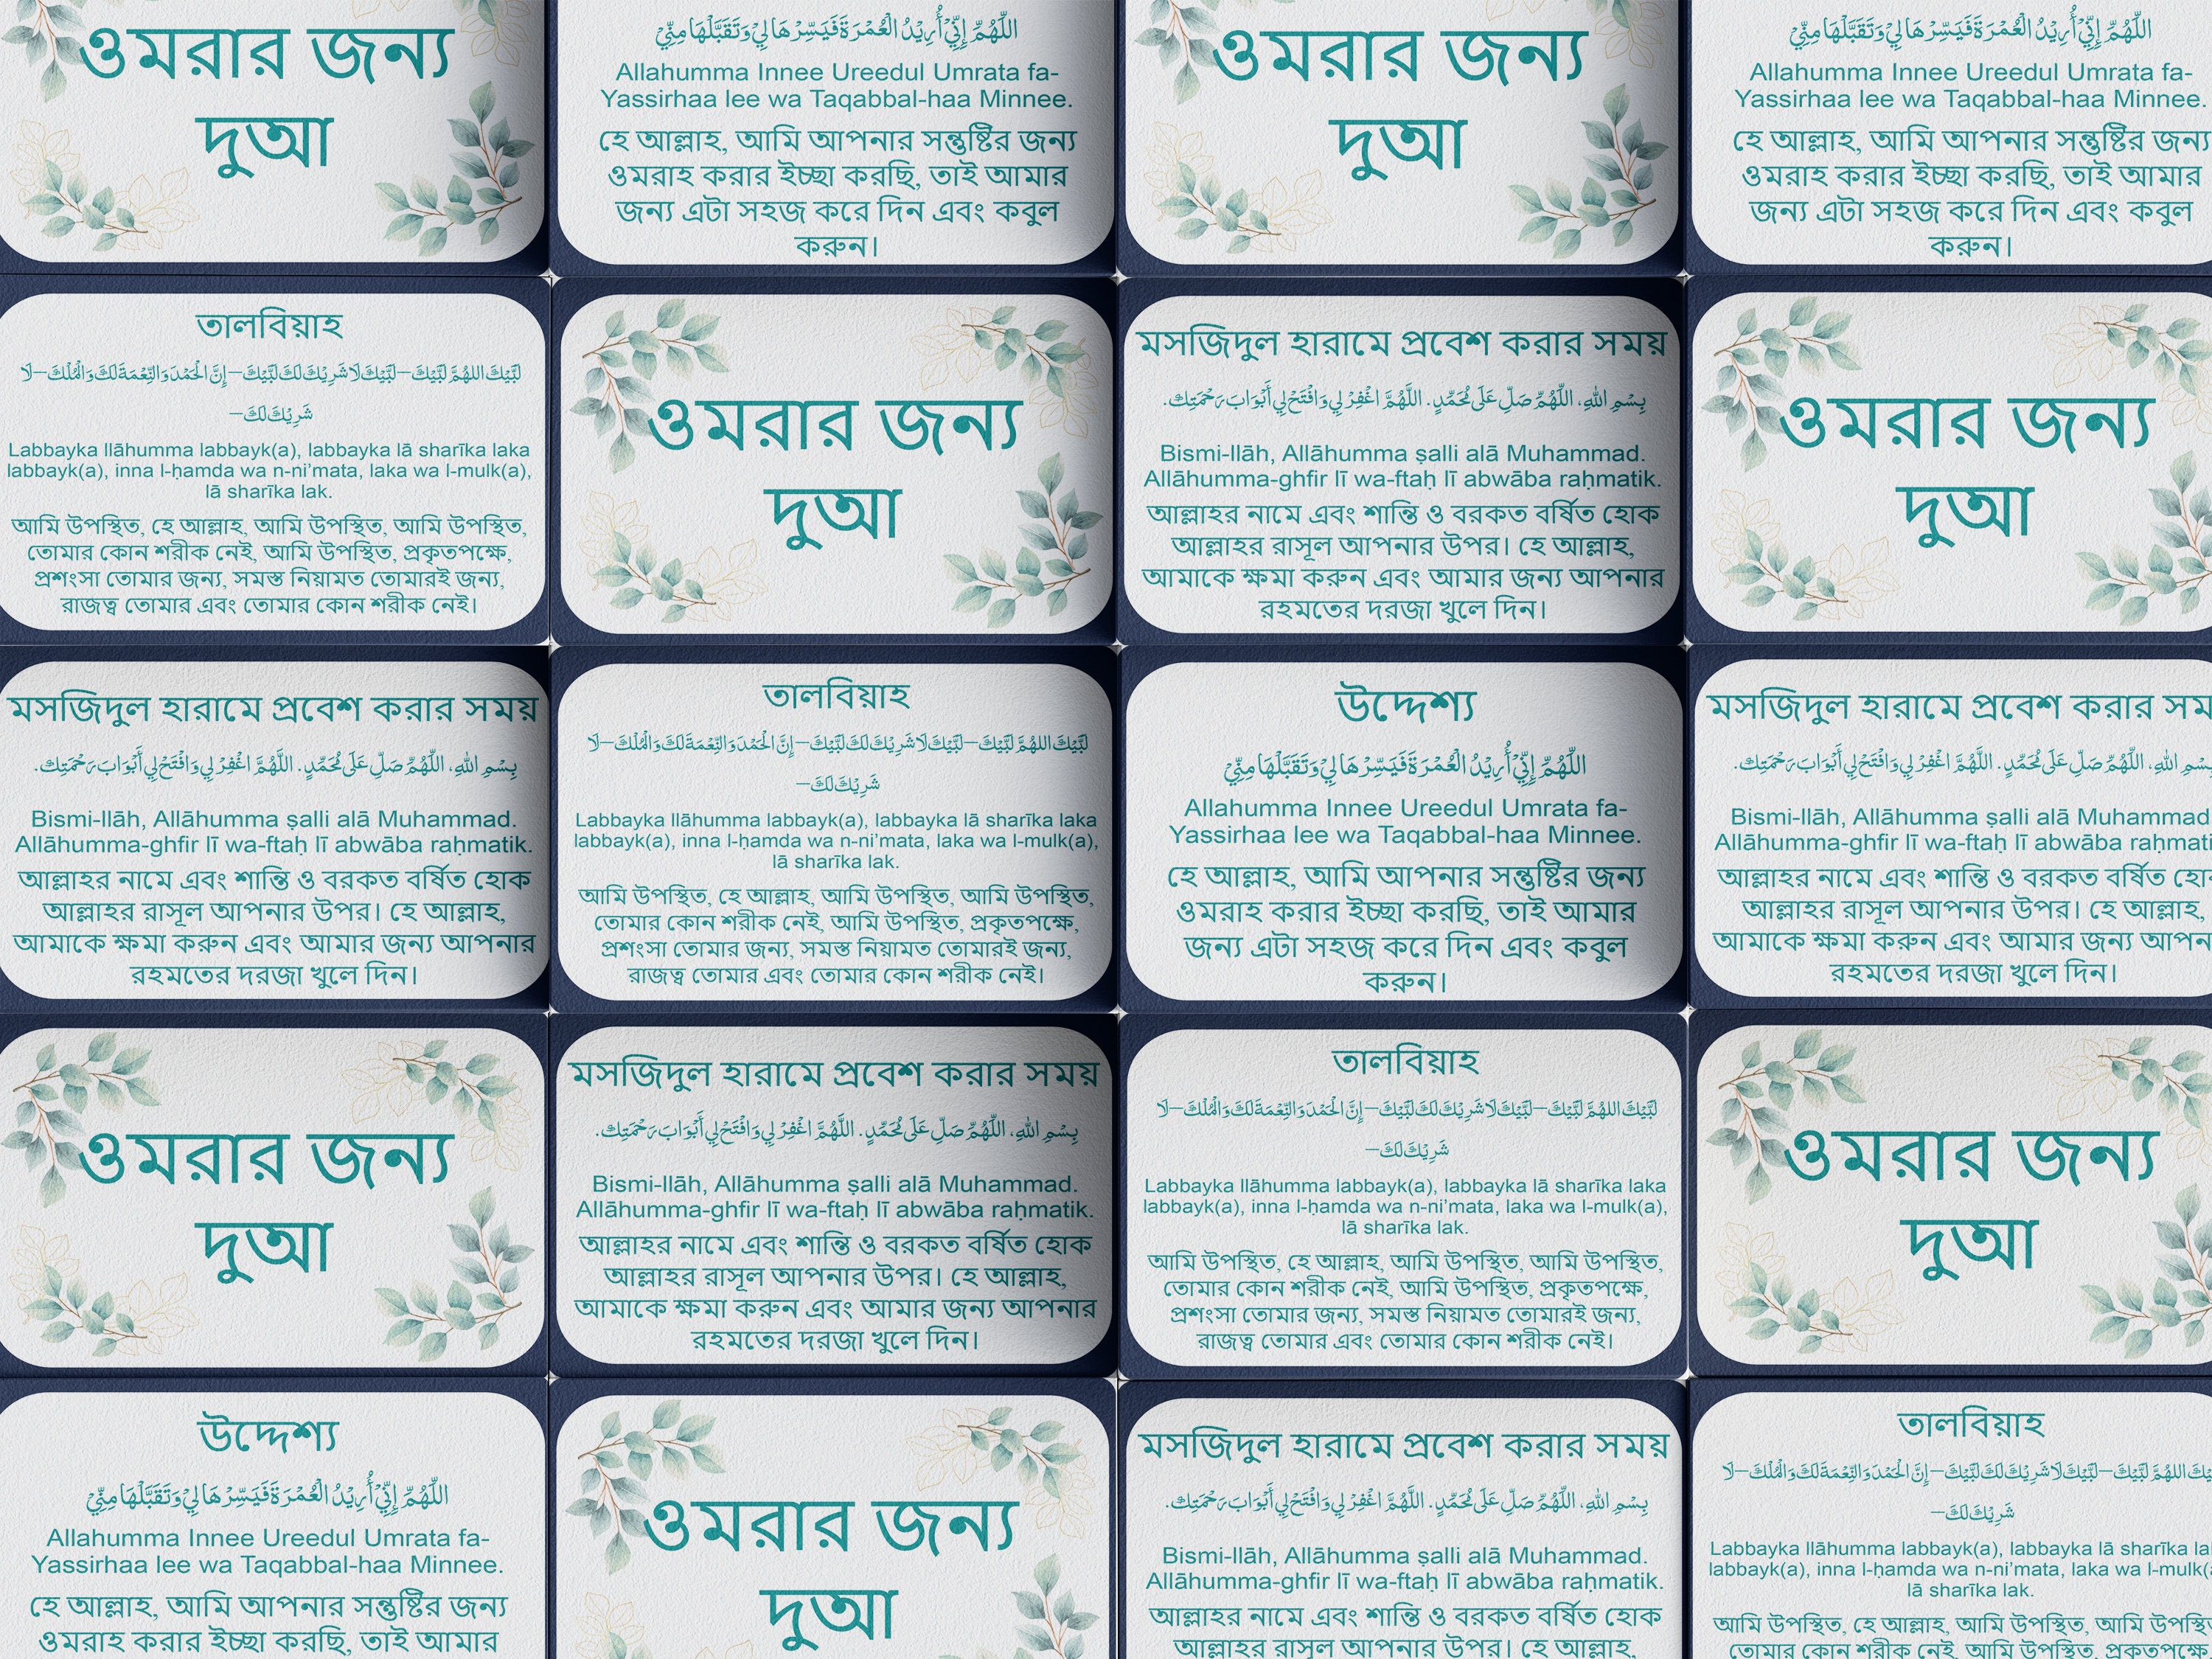 ওমরার জন্য
দুআ
اللّٰهُمَّ إِنِّيْ أُرِيْدُ الْعُمْرَةَ فَيَسِّرْهَا لِيْ وَتَقَبَّلْهَا مِنِّيْ
Allahumma Innee Ureedul Umrata fa-
Yassirhaa lee wa Taqabbal-haa Minnee.
হে আল্লাহ, আমি আপনার সন্তুষ্টির জন্য
ওমরাহ করার ইচ্ছা করছি, তাই আমার
জন্য এটা সহজ করে দিন এবং কবুল
করুন।
ওমরার জন্য
দুআ
اللّٰهُمَّ إِنِّيْ أُرِيْدُ الْعُمْرَةَ فَيَسِّرْهَا لِيْ وَتَقَبَّلْهَا مِنِّيْ
Allahumma Innee Ureedul Umrata fa-
Yassirhaa lee wa Taqabbal-haa Minnee.
হে আল্লাহ, আমি আপনার সন্তুষ্টির জন্য
ওমরাহ করার ইচ্ছা করছি, তাই আমার
জন্য এটা সহজ করে দিন এবং কবুল
করুন।
তালবিয়াহ
لَبَّيْكَ اللهُمَّ لَبَّيْكَ – لَبَّيْكَ لَا شَرِيْكَ لَكَ لَبَّيْكَ – إِنَّ الْحَمْدَ وَالنِّعْمَةَ لَكَ وَالْمُلْكَ – لَا
شَرِيْكَ لَكَ –
Labbayka llāhumma labbayk(a), labbayka lā sharīka laka
labbayk(a), inna l-ḥamda wa n-ni’mata, laka wa l-mulk(a),
lā sharīka lak.
আমি উপস্থিত, হে আল্লাহ, আমি উপস্থিত, আমি উপস্থিত,
তোমার কোন শরীক নেই, আমি উপস্থিত, প্রকৃতপক্ষে,
প্রশংসা তোমার জন্য, সমস্ত নিয়ামত তোমারই জন্য,
রাজত্ব তোমার এবং তোমার কোন শরীক নেই।
ওমরার জন্য
দুআ
মসজিদুল হারামে প্রবেশ করার সময়
بِسْمِ اللهِ، اللَّهُمَّ صَلِّ عَلَى مُحَمَّدٍ. اللَّهُمَّ اغْفِرْ لِي وَافْتَحْ لِي أَبْوَابَ رَحْمَتِك.
Bismi-llāh, Allāhumma ṣalli alā Muhammad.
Allāhumma-ghfir lī wa-ftaḥ lī abwāba raḥmatik.
আল্লাহর নামে এবং শান্তি ও বরকত বর্ষিত হোক
আল্লাহর রাসূল আপনার উপর। হে আল্লাহ,
আমাকে ক্ষমা করুন এবং আমার জন্য আপনার
রহমতের দরজা খুলে দিন।
ওমরার জন্য
দুআ
মসজিদুল হারামে প্রবেশ করার সময়
بِسْمِ اللهِ، اللَّهُمَّ صَلِّ عَلَى مُحَمَّدٍ. اللَّهُمَّ اغْفِرْ لِي وَافْتَحْ لِي أَبْوَابَ رَحْمَتِك.
Bismi-llāh, Allāhumma ṣalli alā Muhammad.
Allāhumma-ghfir lī wa-ftaḥ lī abwāba raḥmatik.
আল্লাহর নামে এবং শান্তি ও বরকত বর্ষিত হোক
আল্লাহর রাসূল আপনার উপর। হে আল্লাহ,
আমাকে ক্ষমা করুন এবং আমার জন্য আপনার
রহমতের দরজা খুলে দিন।
তালবিয়াহ
لَبَّيْكَ اللهُمَّ لَبَّيْكَ – لَبَّيْكَ لَا شَرِيْكَ لَكَ لَبَّيْكَ – إِنَّ الْحَمْدَ وَالنِّعْمَةَ لَكَ وَالْمُلْكَ – لَا
شَرِيْكَ لَكَ –
Labbayka llāhumma labbayk(a), labbayka lā sharīka laka
labbayk(a), inna l-ḥamda wa n-ni’mata, laka wa l-mulk(a),
lā sharīka lak.
আমি উপস্থিত, হে আল্লাহ, আমি উপস্থিত, আমি উপস্থিত,
তোমার কোন শরীক নেই, আমি উপস্থিত, প্রকৃতপক্ষে,
প্রশংসা তোমার জন্য, সমস্ত নিয়ামত তোমারই জন্য,
রাজত্ব তোমার এবং তোমার কোন শরীক নেই।
উদ্দেশ্য
اللّٰهُمَّ إِنِّيْ أُرِيْدُ الْعُمْرَةَ فَيَسِّرْهَا لِيْ وَتَقَبَّلْهَا مِنِّيْ
Allahumma Innee Ureedul Umrata fa-
Yassirhaa lee wa Taqabbal-haa Minnee.
হে আল্লাহ, আমি আপনার সন্তুষ্টির জন্য
ওমরাহ করার ইচ্ছা করছি, তাই আমার
জন্য এটা সহজ করে দিন এবং কবুল
করুন।
মসজিদুল হারামে প্রবেশ করার
اللهِ، اللَّهُمَّ صَلِّ عَلَى مُحَمَّدٍ. اللَّهُمَّ اغْفِرْ لِي وَافْتَحْ لِي أَبْوَابَ رَحْمَتِك.
Bismi-llāh, Allāhumma ṣalli alā Muhammad
Allāhumma-ghfir lī wa-ftaḥ lī abwāba
আল্লাহর নামে এবং শান্তি ও বরকত বর্ষিত
আল্লাহর রাসূল আপনার উপর। হে আল্লাহ,
আমাকে ক্ষমা করুন এবং আমার জন্য
রহমতের দরজা খুলে দিন।
ওমরার জন্য
দুআ
মসজিদুল হারামে প্রবেশ করার সময়
بِسْمِ اللهِ، اللَّهُمَّ صَلِّ عَلَى مُحَمَّدٍ. اللَّهُمَّ اغْفِرْ لِي وَافْتَحْ لِي أَبْوَابَ رَحْمَتِك.
Bismi-llāh, Allāhumma ṣalli alā Muhammad.
Allāhumma-ghfir lī wa-ftaḥ lī abwāba raḥmatik.
আল্লাহর নামে এবং শান্তি ও বরকত বর্ষিত হোক
আল্লাহর রাসূল আপনার উপর। হে আল্লাহ,
আমাকে ক্ষমা করুন এবং আমার জন্য আপনার
রহমতের দরজা খুলে দিন।
তালবিয়াহ
لَبَّيْكَ اللهُمَّ لَبَّيْكَ – لَبَّيْكَ لَا شَرِيْكَ لَكَ لَبَّيْكَ – إِنَّ الْحَمْدَ وَالنِّعْمَةَ لَكَ وَالْمُلْكَ – لَا
شَرِيْكَ لَكَ –
Labbayka llāhumma labbayk(a), labbayka lā sharīka laka
labbayk(a), inna l-ḥamda wa n-ni’mata, laka wa l-mulk(a),
lā sharīka lak.
আমি উপস্থিত, হে আল্লাহ, আমি উপস্থিত, আমি উপস্থিত,
তোমার কোন শরীক নেই, আমি উপস্থিত, প্রকৃতপক্ষে,
প্রশংসা তোমার জন্য, সমস্ত নিয়ামত তোমারই জন্য,
রাজত্ব তোমার এবং তোমার কোন শরীক নেই।
ওমরার জন্য
দুআ
উদ্দেশ্য
اللّٰهُمَّ إِنِّيْ أُرِيْدُ الْعُمْرَةَ فَيَسِّرْهَا لِيْ وَتَقَبَّلْهَا مِنِّيْ
Allahumma Innee Ureedul Umrata fa-
Yassirhaa lee wa Taqabbal-haa Minnee.
হে আল্লাহ, আমি আপনার সন্তুষ্টির জন্য
ওমরাহ করার ইচ্ছা করছি, তাই আমার
ওমরার জন্য
দুআ
মসজিদুল হারামে প্রবেশ করার সময়
بِسْمِ اللهِ، اللَّهُمَّ صَلِّ عَلَى مُحَمَّدٍ. اللَّهُمَّ اغْفِرْ لِي وَافْتَحْ لِي أَبْوَابَ رَحْمَتِك.
Bismi-llāh, Allāhumma ṣalli alā Muhammad.
Allāhumma-ghfir lī wa-ftaḥ lī abwāba raḥmatik.
আল্লাহর নামে এবং শান্তি ও বরকত বর্ষিত হোক
আল্লাহর রাসূল আপনার উপর। হে আল্লাহ,
তালবিয়াহ
اللهُمَّ لَبَّيْكَ – لَبَّيْكَ لَا شَرِيْكَ لَكَ لَبَّيْكَ – إِنَّ الْحَمْدَ وَالنِّعْمَةَ لَكَ وَالْمُلْكَ – لَا
شَرِيْكَ لَكَ –
Labbayka llāhumma labbayk(a), labbayka lā sharīka
labbayk(a), inna l-ḥamda wa n-ni’mata, laka wa
lā sharīka lak.
আমি উপস্থিত, হে আল্লাহ, আমি উপস্থিত, আমি
তোমার কোন শরীক নেই, আমি উপস্থিত,